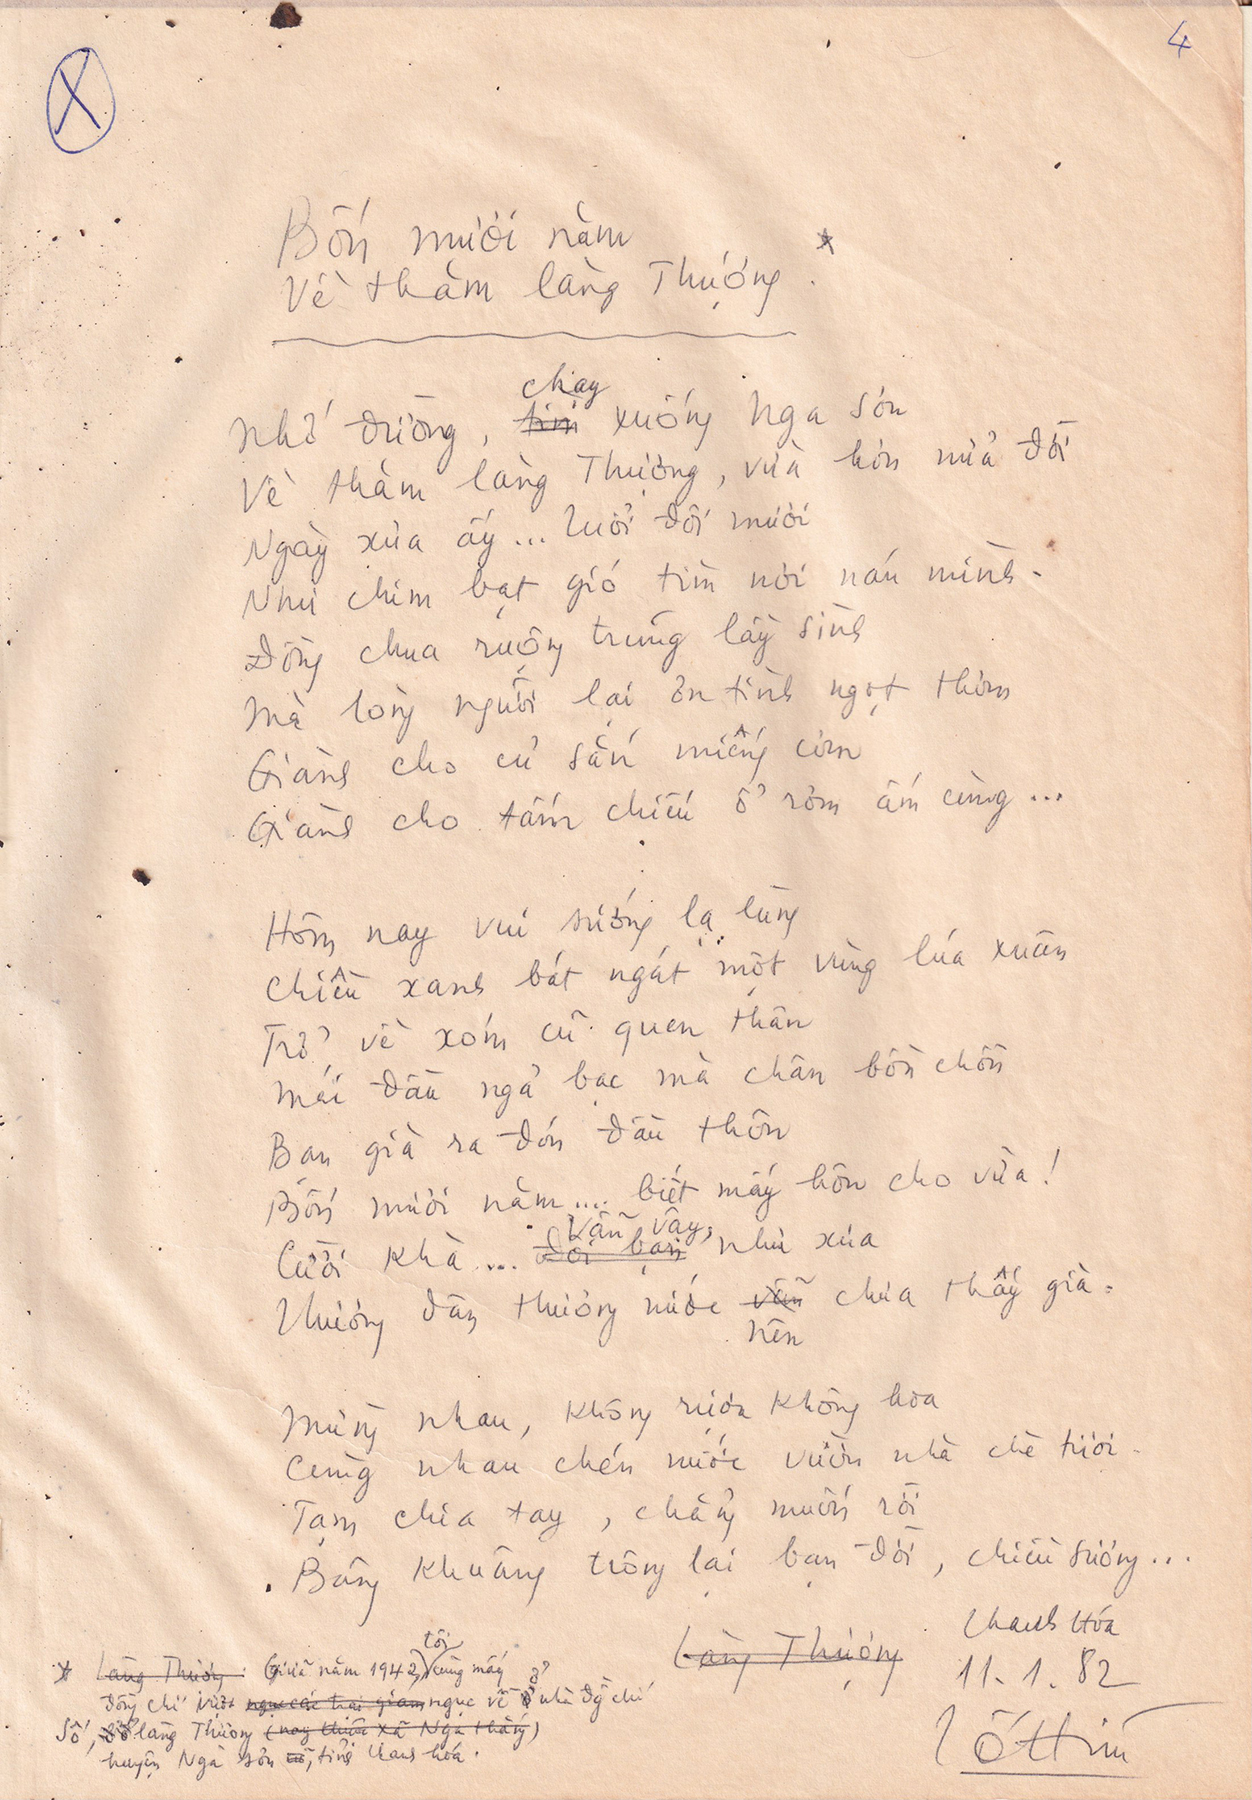 X
4
Bốn mươi năm
Về thăm làng Thượng *
chạy
Nhớ đường, tìm xuống Nga Sơn
Về thăm làng Thượng, vừa hơn nửa đời
Ngày xưa ấy... tuổi đôi mươi
Như chim bạt gió tìm nơi náu mình.
Đồng chua ruộng trũng lầy sình
Mà lòng người lại ơn tình ngọt thơm
Giành cho củ sắn miếng cơm
Giành cho tấm chiếu ổ rơm ấm cùng...
Hôm nay vui sướng lạ lùng
Chiều xanh bát ngát một vùng lúa xuân
Trở về xóm cũ quen thân
Mái đầu ngả bạc mà chân bồn chồn
Bạn già ra đón đầu thôn
Bốn mươi năm.... biết mấy hôn cho vừa!
vẫn vậy,
Cười khà... đôi bạn như xưa
Thương dân thương nước vẫn chưa thấy già.
nên
Mừng nhau, không rượu không hoa
Cùng nhau chén nước vườn nhà chè tươi.
Tạm chia tay, chẳng muốn rời
Bâng khuâng trông lại bạn đời, chiều sương...
Làng Thượng
Thanh Hóa
11.1.82
Tố Hữu
tôi
* Làng Thượng: Giữa năm 1942, cùng mấy
đồng chí vượt ngục các trại giam ngục về ở nhà đ/chí
Số, ở làng Thượng (nay thuộc xã Nga thắng)
huyện Nga sơn, tỉnh thanh hóa.